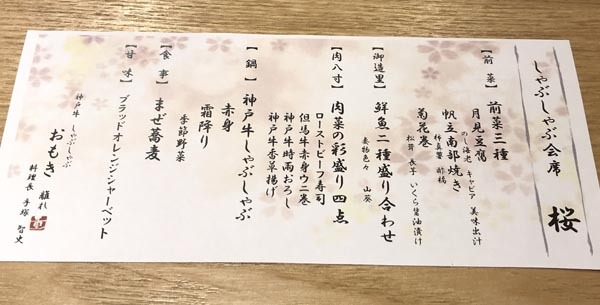 しゃぶしゃぶ会席 桜
【前菜】 前菜三種
月見豆腐
のし海老 キャビア 美味出汁
帆立南部焼き
科真薯 酢橘
菊花巻
松茸 長芋 いくら醤油漬け
【御造里】 鮮魚二種盛り合わせ
妻物色々 山葵
【肉八寸】 肉菜の彩盛り 四点
ローストビーフ寿司
但馬牛赤身ウニ巻
神戸牛時雨おろし
神戸牛香草揚げ
【鍋】 神戸牛しゃぶしゃぶ
赤身
霜降り
季節野菜
【食事】 まぜ蕎麦
【甘味】 ブラッドオレンジシャーベット
神戸牛 しゃぶしゃぶ
おもき 離れ
料理長 手塚 智史